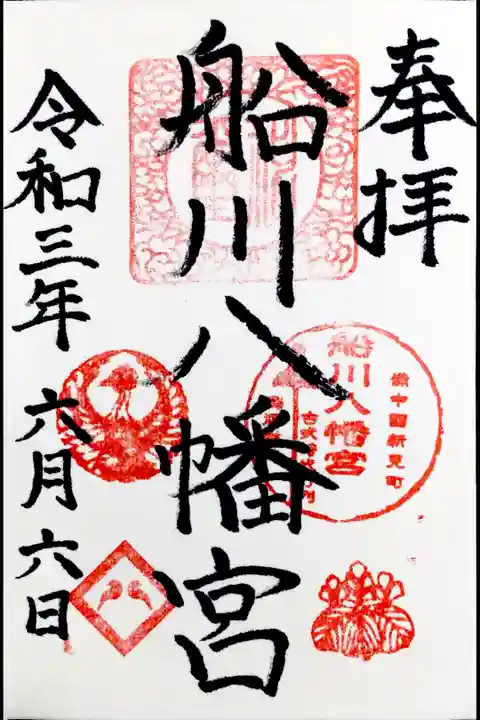 奉拝
船川八幡宮
令和三年六月六日
備中國新見町
船川八幡宮